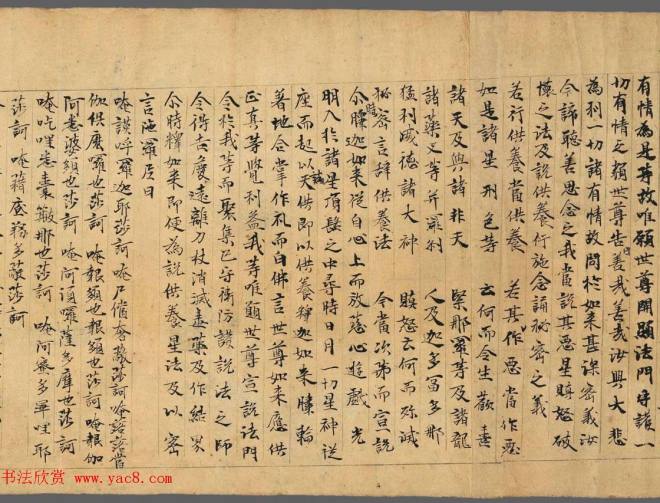 有情為是等故唯願世尊開顯法門守護一
切有情之類世尊告善哉善哉汝興大悲
為利一切諸有情故問於如来甚深密義汝
今諦聽善思念之我當說其惡星瞋怒破
懷之法及說供養行施念誦祕密之義
若行供養當供養　若其作惡當作惡
如是諸星刑色等　云何而令生歡喜
諸天及與諸非天　緊那羅等及諸龍
諸藥叉等并羅刹　人及迦多冨多那
猛利威德諸大神　瞋怒云何而弥滅
祕密言辞供養法　今當次苐而宣說
尒時釋迦如来從自心上而放慈心遊戲光
明入於諸星頂髻之中尋時日月一切星神從
座而起以天諸供即以供養釋迦如来膝輪
著地合掌作礼而白佛言世尊如来應供
正真等覺利益我等唯願世尊宣說法門
令於我等而聚集已守衛防護說法之師
令得吉慶遠離刀杖消滅毒藥及作結界
尒時釋迦如来即便為說供養星法及以密
言陁羅尼曰
唵謨呼羅迦耶莎訶　唵尸儋奢蔽莎訶唵
伽俱麽囉也莎訶　唵報也報也莎訶　唵報伽
阿悉也莎訶　唵阿囉薩多麽也莎訶
唵訖里那也莎訶　唵阿蜜多畢哩耶
莎訶　唵多蔽莎訶
书法欣赏
www.yac8.com